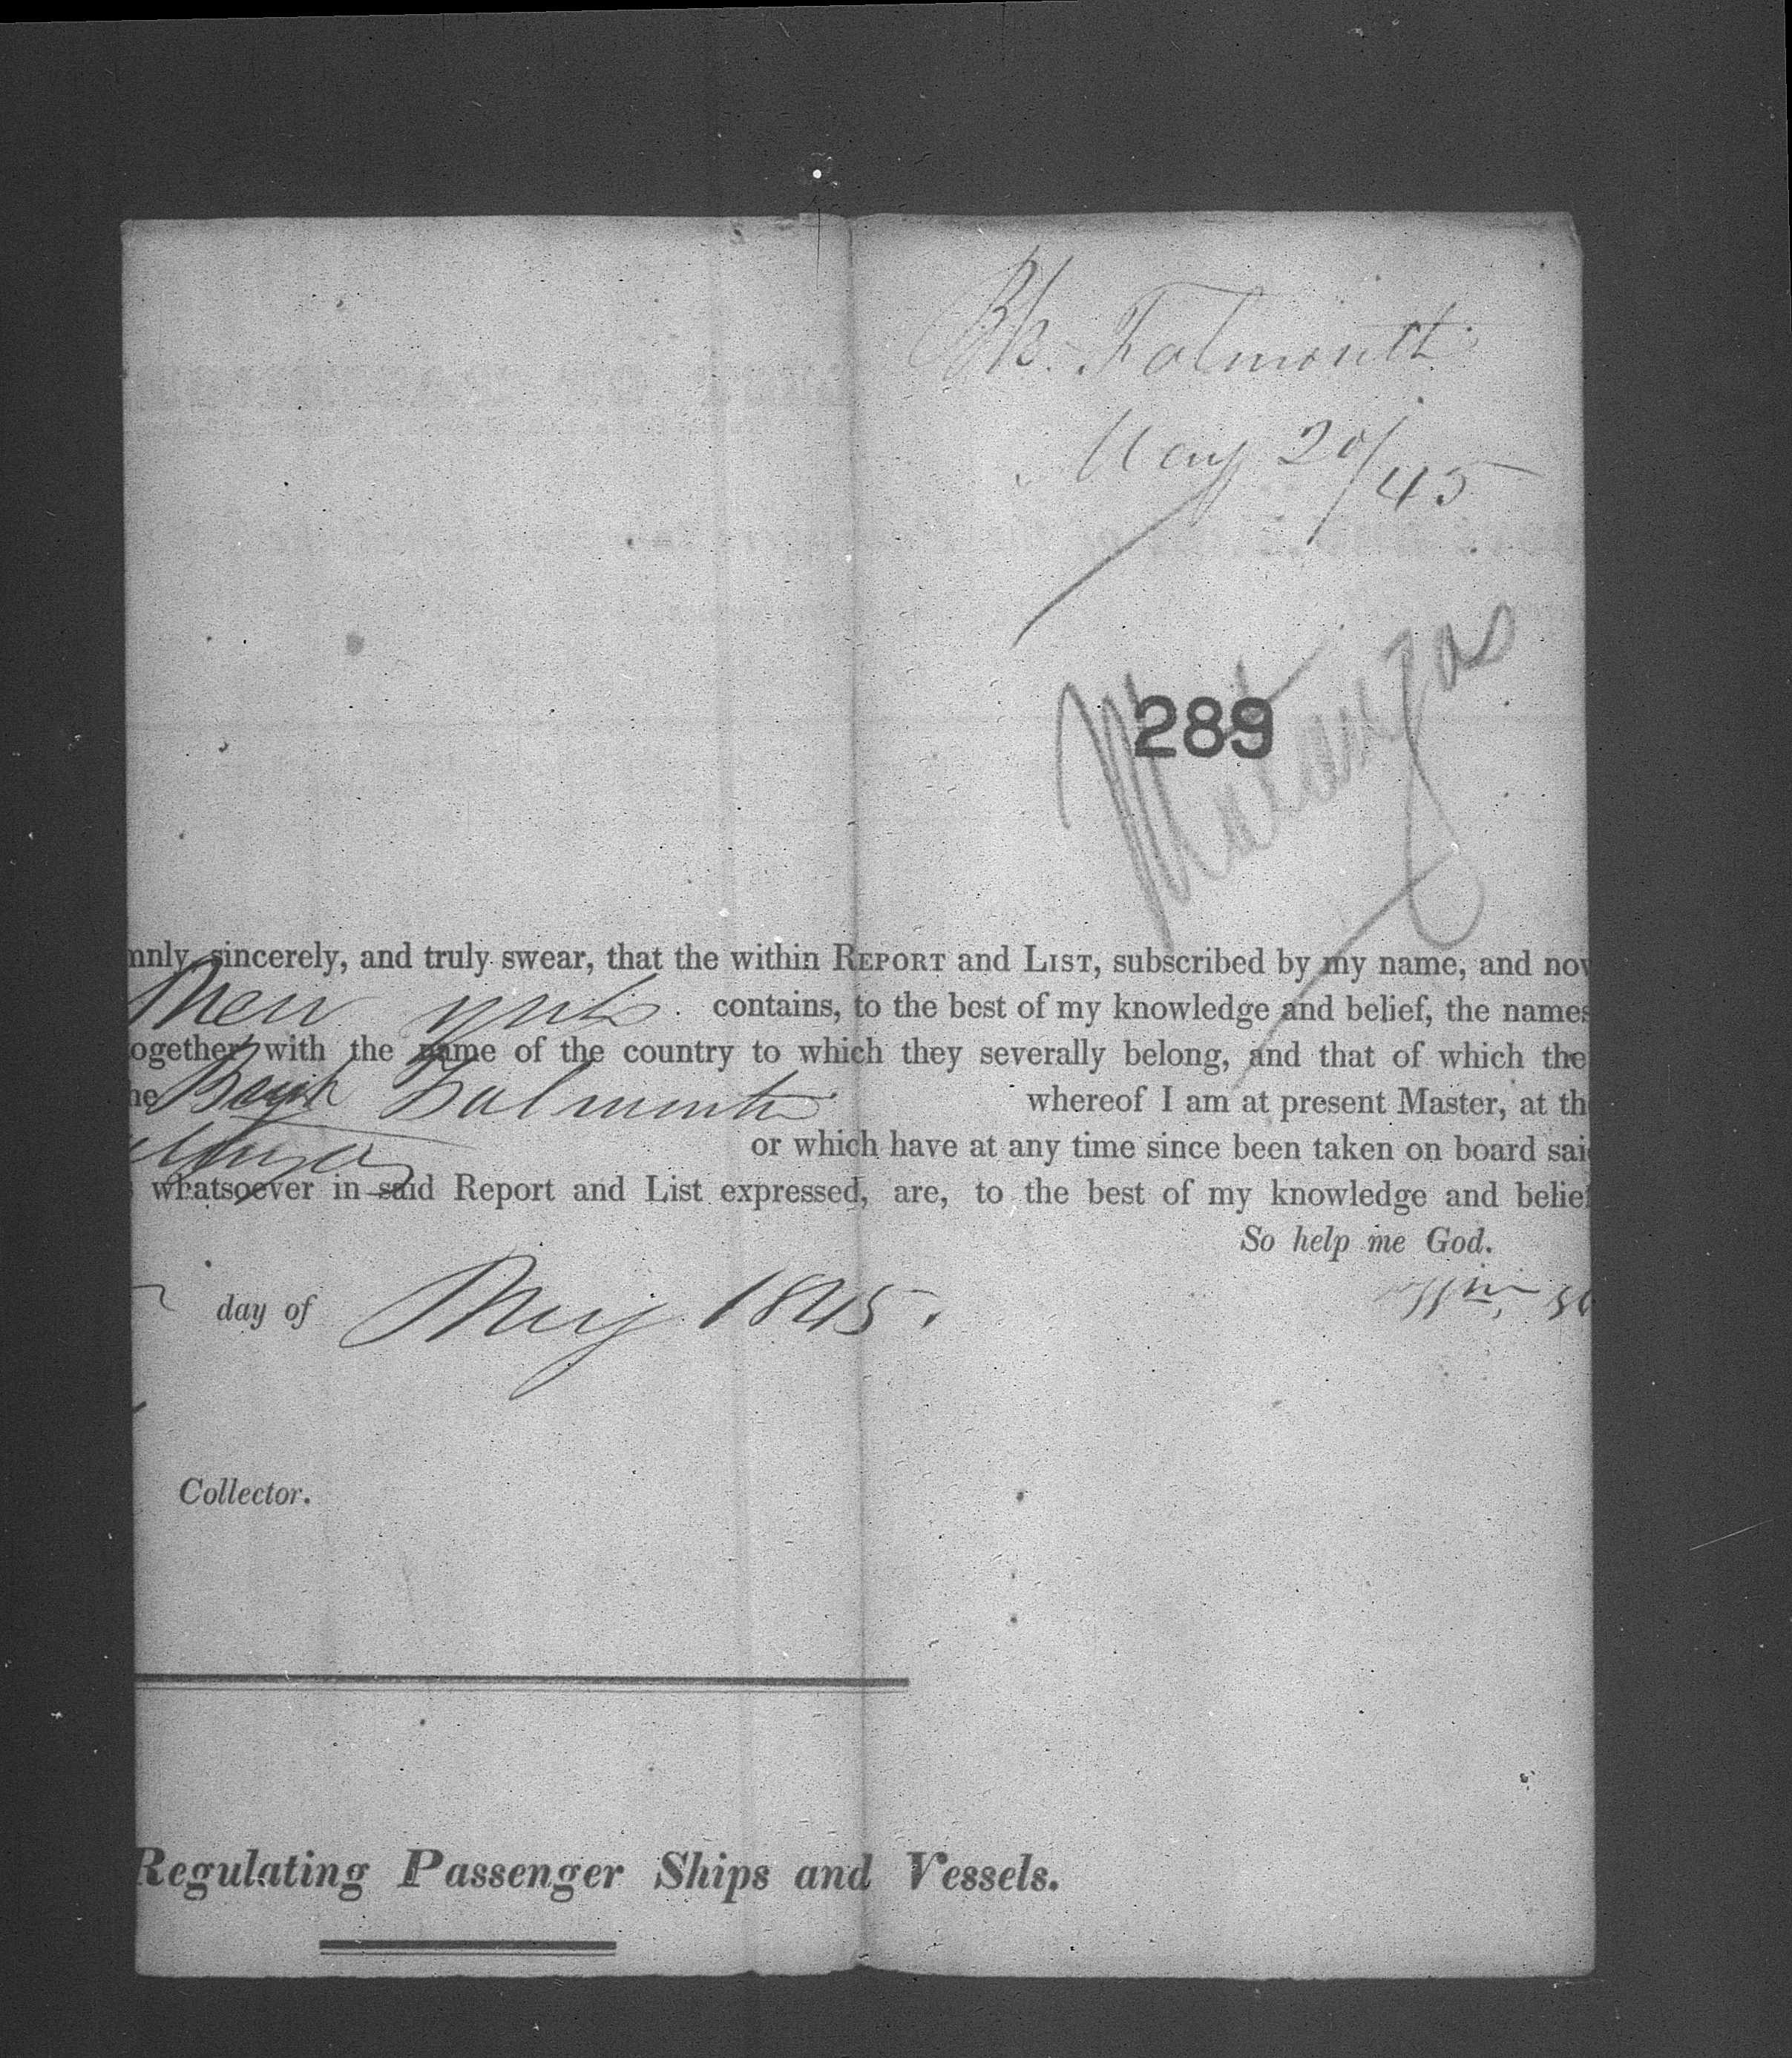 Bk. Falmouth
May 20/45
Matanzas
289
mnly, sincerely, and truly swear, that the within REPORT and LIST, subscribed by my name, and now
New York contains, to the best of my knowledge and belief, the names
ogether with the name of the country to which they severally belong, and that of which the
he Bark Falmouth whereof I am at present Master, at th
or which have at any time since been taken on board said
whatsoever in said Report and List expressed, are, to the best of my knowledge and belief
So help me God.
day of May 1845.
Collector.
Regulating Passenger Ships and Vessels.